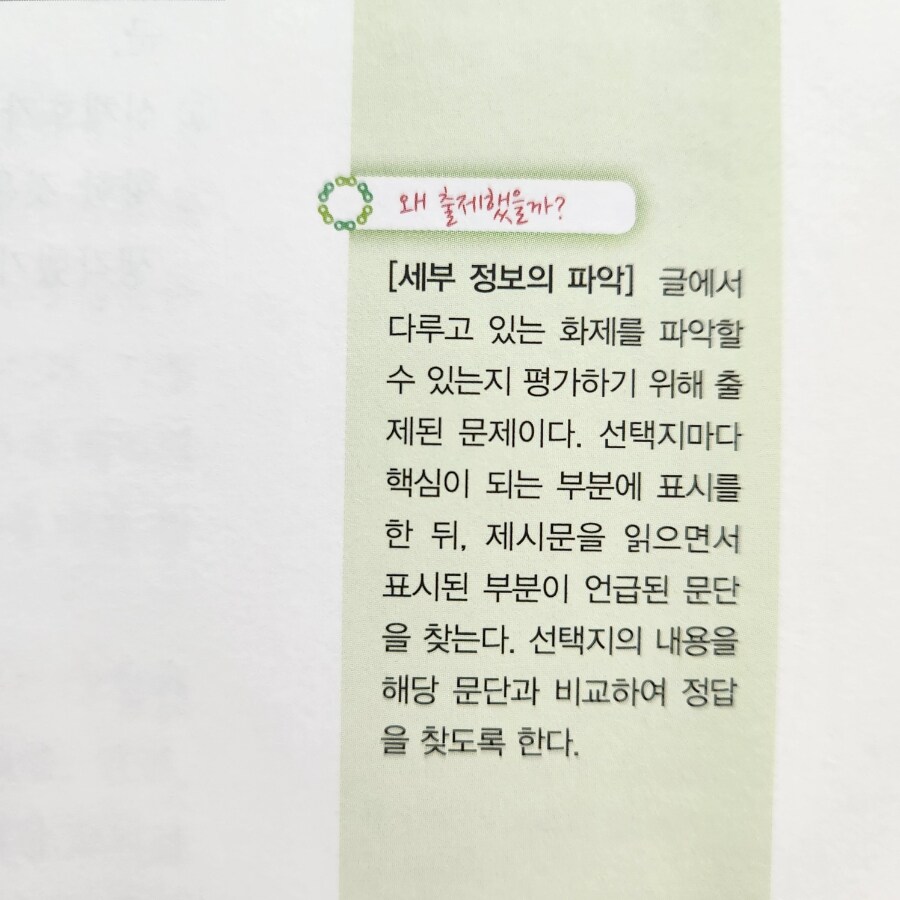 왜 출제했을까?
[세부 정보의 파악] 글에서
다루고 있는 화제를 파악할
수 있는지 평가하기 위해 출
제된 문제이다. 선택지마다
핵심이 되는 부분에 표시를
한 뒤, 제시문을 읽으면서
표시된 부분이 언급된 문단
을 찾는다. 선택지의 내용을
해당 문단과 비교하여 정답
을 찾도록 한다.